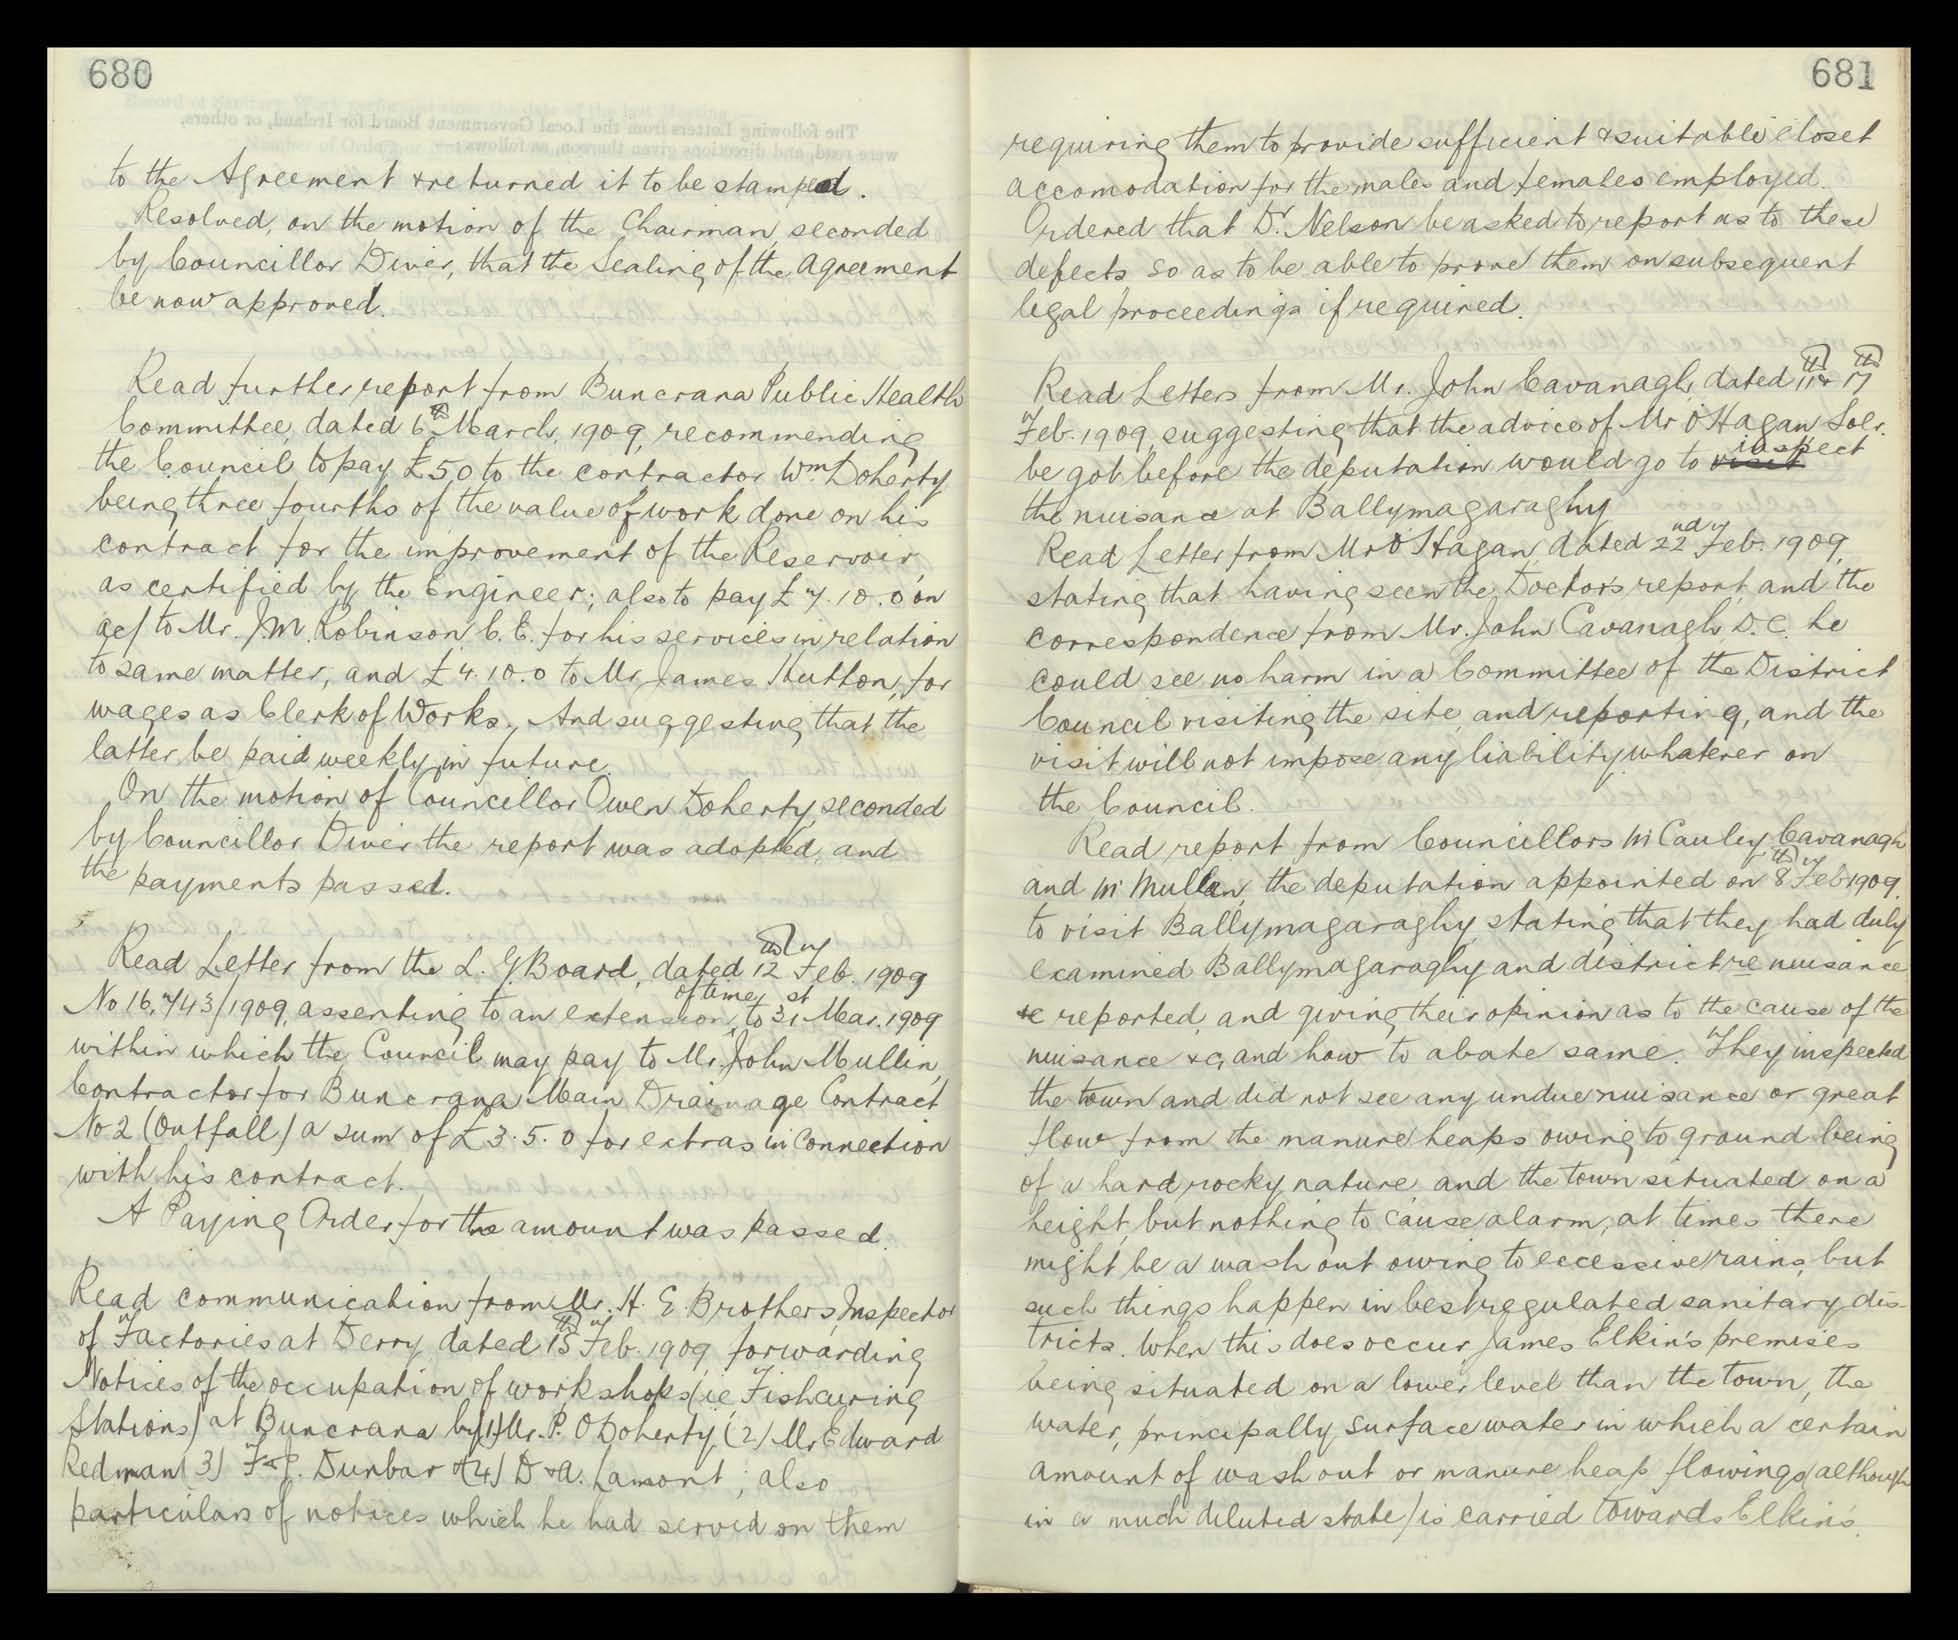 680
to the Agreement & returned it to be stamped.
Resolved, on the motion of the Chairman, seconded
by Councillor Diver, that the Sealing of the Agreement
be now approved.
Read further report from Buncrana Public Health
Committee, dated 6th March, 1909, recommending
the Council to pay £50 to the contractor Wm. Doherty
being three fourths of the value of work done on his
contract for the improvement of the Reservoir,
as certified by the Engineer; also to pay £7.10.0 on
ac/ to Mr. J.M. Robinson C.E. for his services in relation
to same matter, and £4.10.0 to Mr James Hutton, for
wages as Clerk of Works. And suggesting that the
latter be paid weekly in future.
On the motion of Councillor Owen Doherty, seconded
by Councillor Diver the report was adopted, and
the payments passed.
Read Letter from the L. G. Board, dated 12th Feby. 1909
No 16,743/1909, assenting to an extension of time, to 31st Mar. 1909
within which the Council may pay to Mr. John Mullin,
Contractor for Buncrana Main Drainage Contract
No 2 (Outfall) a sum of £3.5.0 for extras in Connection
with his contract.
A Paying Order for the amount was passed.
Read communication from Mr. H. E. Brothers, Inspector
of Factories at Derry, dated 15th Feby. 1909, forwarding
Notices of the occupation of workshops (ie, Fishcuring
Stations) at Buncrana by (1) Mr. P. O'Doherty, (2) Mr Edward
Redman (3) F & J. Dunbar & (4) D & A. Lamont; also
particulars of notices which he had served on them
681
requiring them to provide sufficient & suitable closet
accomodation for the males and females employed.
Ordered that Dr. Nelson be asked to report as to these
defects so as to be able to prove them on subsequent
legal proceedings if required.
Read Letters from Mr. John Cavanagh, dated 11th & 17th
Feby. 1909, suggesting that the advice of Mr O'Hagan Solr.
be got before the deputation would go to visit inspect
the nuisance at Ballymagaraghy
Read Letter from Mr O'Hagan, dated 22nd Feby. 1909,
stating that having seen the Doctor's report, and the
correspondence from Mr. John Cavanagh, D.C. he
could see no harm in a Committee of the District
Council visiting the site and reporting, and the
visit will not impose any liability whatever on
the Council.
Read report from Councillors McCauley, Cavanagh
and McMullen, the deputation appointed on 8th Feby 1909.
to visit Ballymagaraghy, stating that they had duly
examined Ballymagaraghy and district re nuisance
&c reported, and giving their opinion as to the cause of the
nuisance &c, and how to abate same. They inspected
the town and did not see any undue nuisance or great
flow from the manure heaps owing to ground being
of a hard rocky nature, and the town situated on a
height, but nothing to cause alarm, at times there
might be a wash out owing to eccessive rains, but
such things happen in best regulated sanitary dis-
tricts. When this does occur, James Elkin's premises
being situated on a lower level than the town, the
water, principally surface water in which a certain
amount of wash out or manure heap flowings (although
in a much diluted state) is carried towards Elkin's.